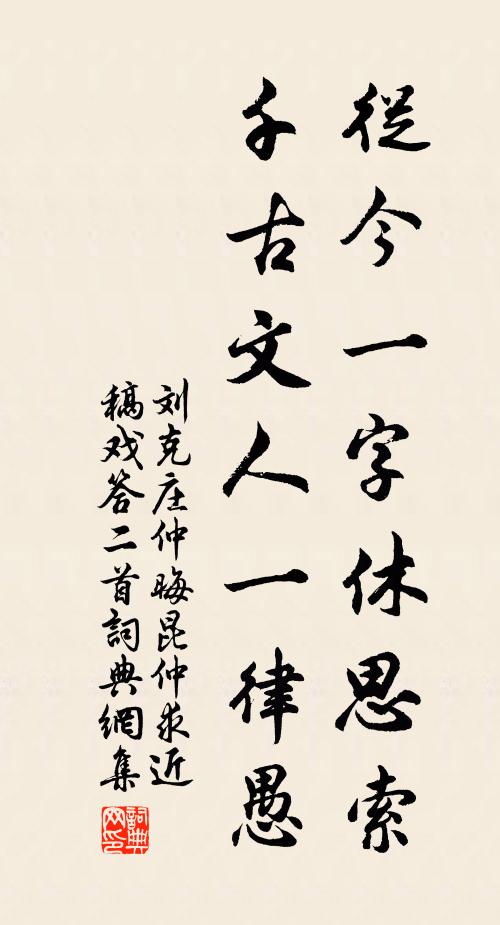 從今一字休思索
千古文人一律愚
刘克庄仲晦昆仲求近
稿戏答二首詞典網集